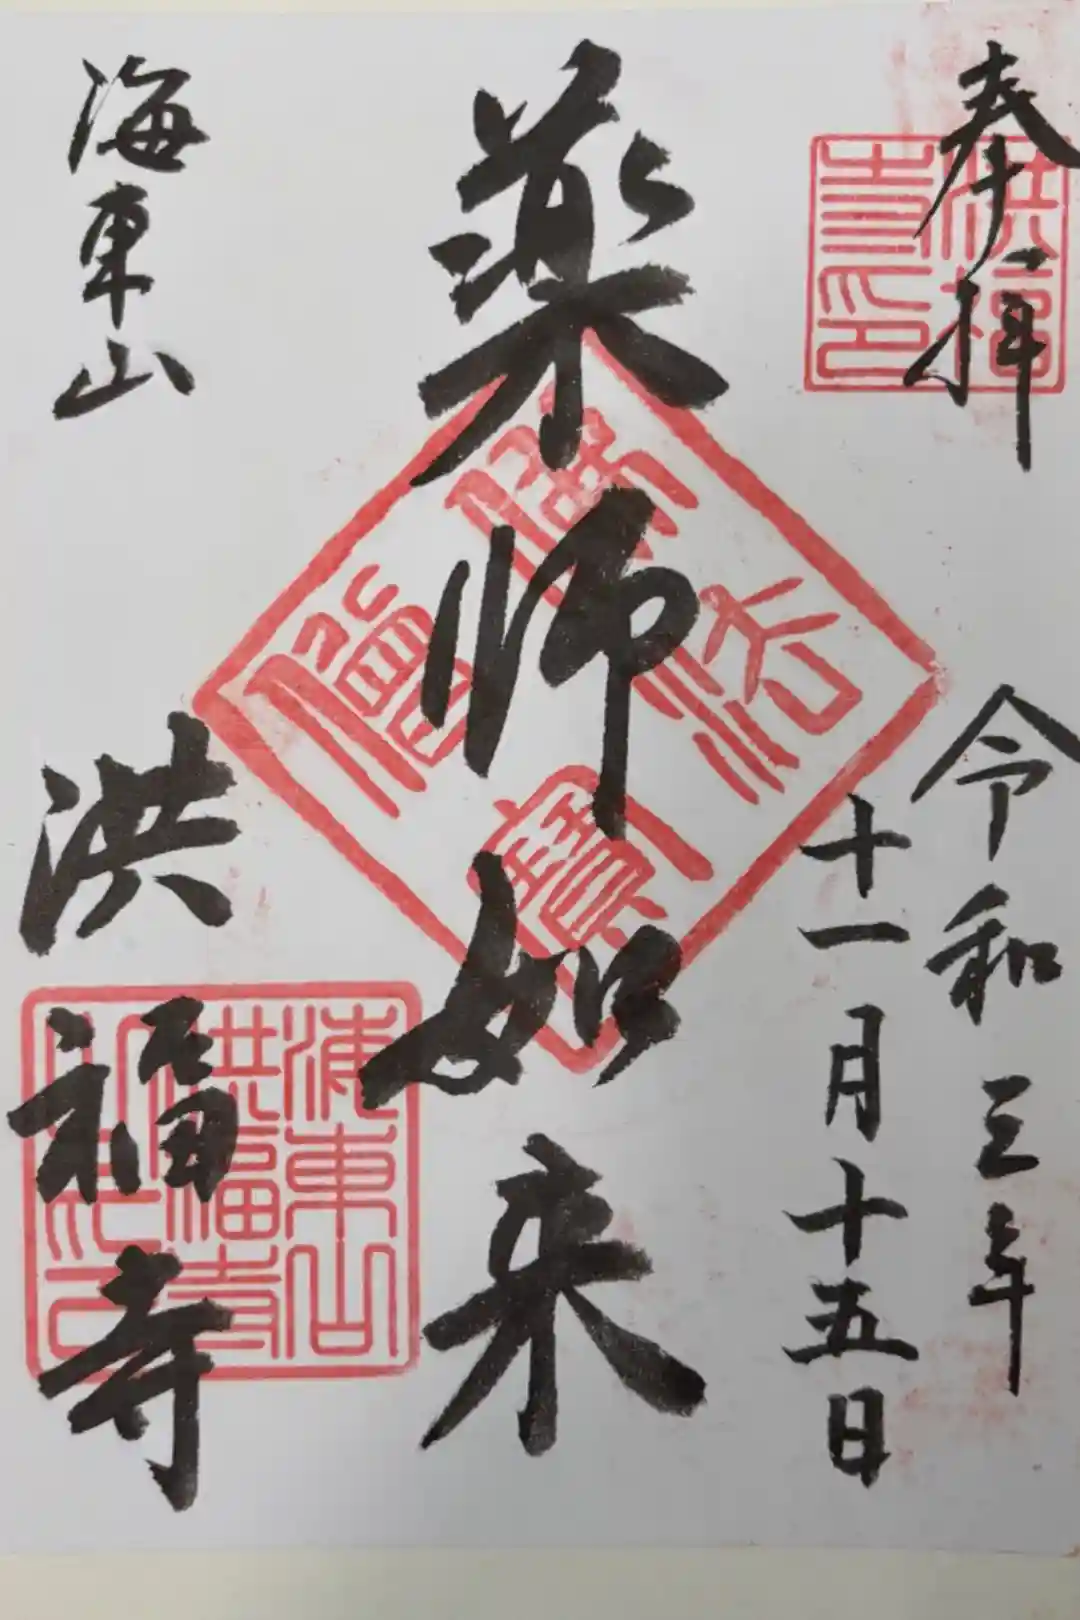 奉拝
令和三年
十一月十五日
薬師如来
海東山
洪福寺
洪福
寺印
佛法
僧寶
海東山
洪福寺